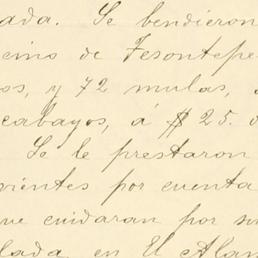 lada. Se bendieron
cino de Tesontepe
os, y 72 mulas,
cabayos, á $25.
Se le prestaron
vientes por cuenta
que cuidaran por su
lada en El Alam